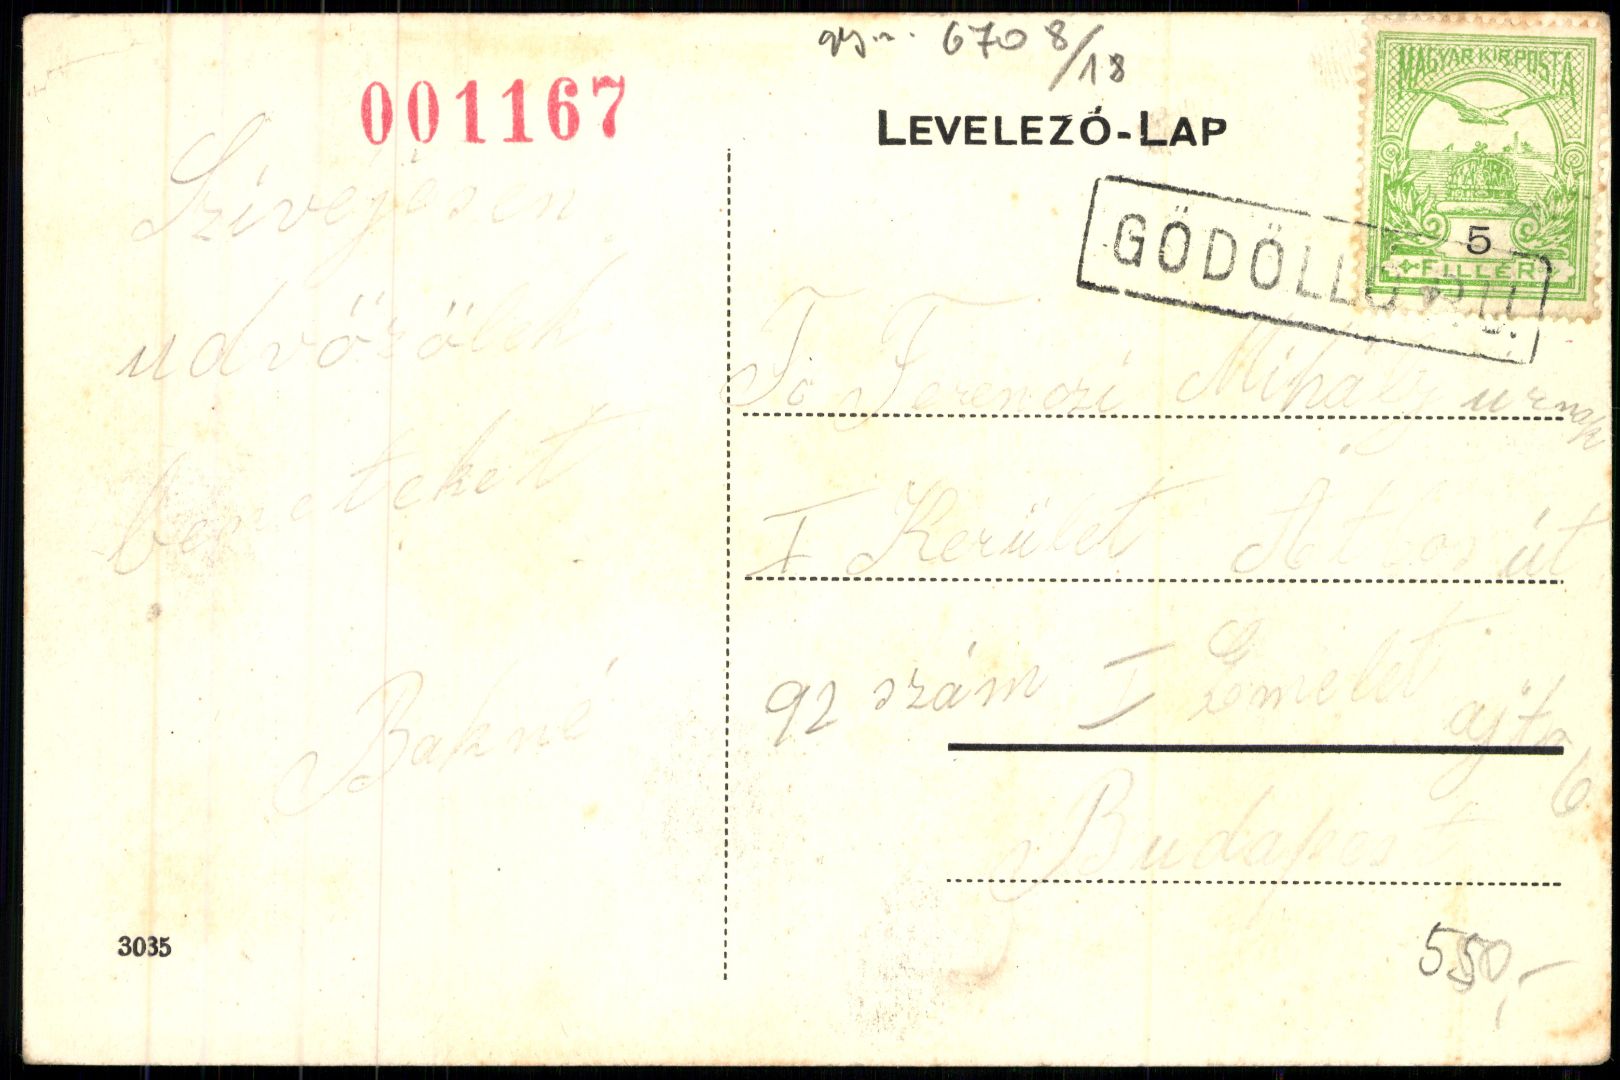 670 8/18
001167
LEVELEZŐ-LAP
MAGYAR KIR. POSTA
5
FILLÉR
GÖDÖLLŐ P.U.
Szívejésen
udvözölek
beneteket
Bakné
Ferenczi Mihály urnak
I Kerület út
92 szám I Emelet
ajtó 6
Budapest
3035
550,-